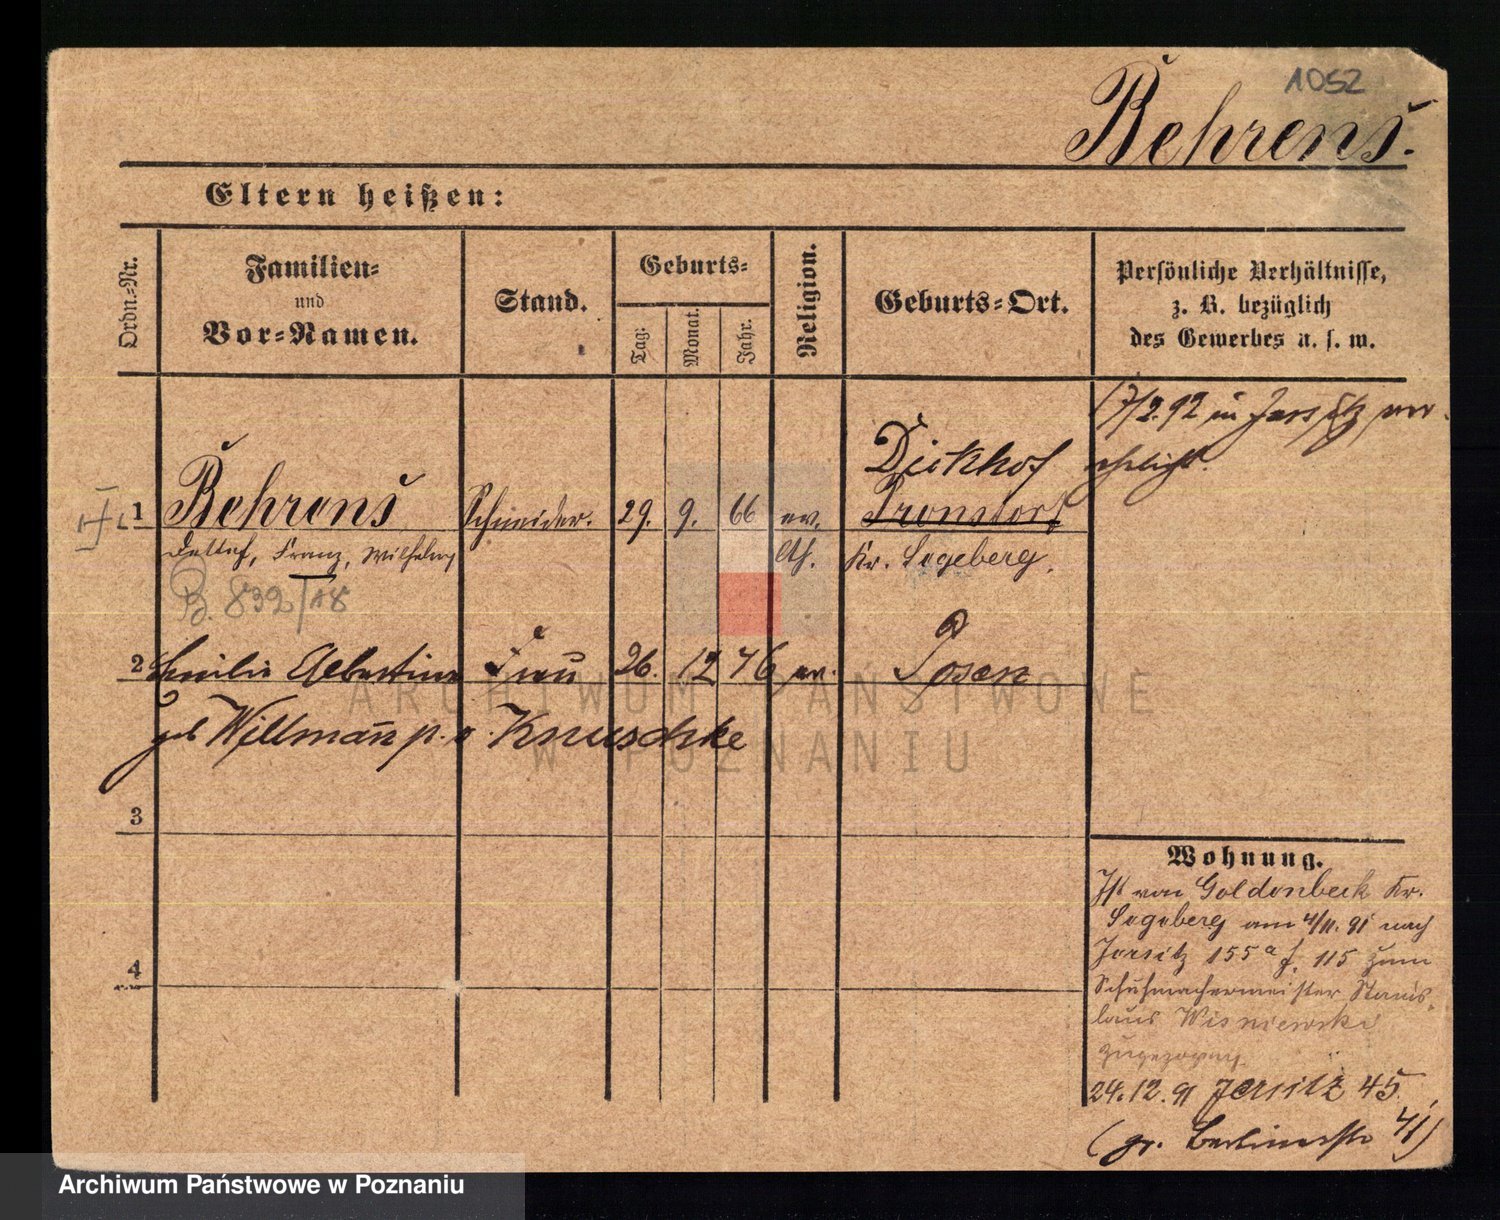 1052
Behrens.
Eltern heißen:
Ordn.-Nr.
Familien-
und
Vor-Namen.
Stand.
Geburts-
Tag:
Monat.
Jahr.
Religion.
Geburts-Ort.
Persönliche Verhältnisse,
z. B. bezüglich
des Gewerbes u. s. w.
17/2.92 in Jersitz ver-
ehelicht.
Dickhof
1 Behrens Schneider. 29. 9. 66 ev. Pronstorf
Detlef, Franz, Wilhelm lth. Kr. Segeberg.
B. 832/18
2 Emilie Albertine Frau 26. 12 76 ev. Posen
geb Willmann p. Knuschke
ARCHIWUM PAŃSTWOWE
W POZNANIU
3
4
Wohnung.
Ist von Goldenbeck Kr.
Segeberg am 4/11.91 nach
Jersitz 155a f. 115 zum
Schuhmachermeister Stanis-
laus Wisniewski
zugezogen
24.12.91 Jersitz 45.
(gr. Berlinerstr 41)
Archiwum Państwowe w Poznaniu